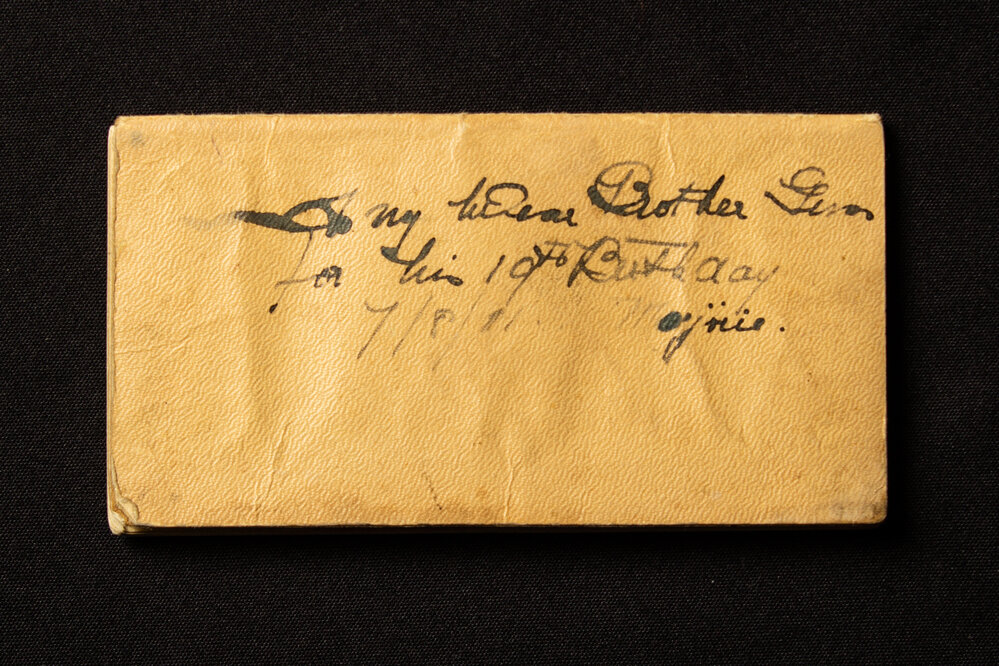 To my dear Brother
for his 19th Birthday
7/8/11. Marjorie.